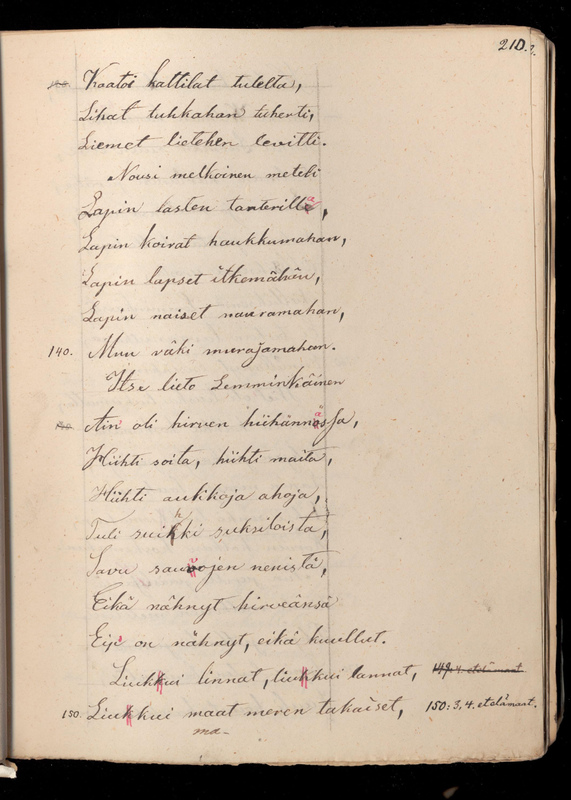 210.
Kaatoi kattilat tulelta,
Lihat tuhkahan tuherti,
Liemet lietehen levitti.
Nousi melkoinen meteli
Lapin lasten tanterilla,
Lapin koirat haukkumahan,
Lapin lapset itkemähän,
Lapin naiset nauramahan,
140. Muu väki murajamahan.
Itse lieto Lemminkäinen
Ain' oli hirven hiihännässä,
Hiihti soita, hiihti maita,
Hiihti aukkoja ahoja,
Tuli suihki suksiloista,
Savu sauvojen nenistä,
Eikä nähnyt hirveänsä
Eip' on nähnyt, eikä kuullut.
Liukui linnat, liukui lannat,
150. Liukui maat meren takaiset, 150: 3, 4. etelämaat.
ma-